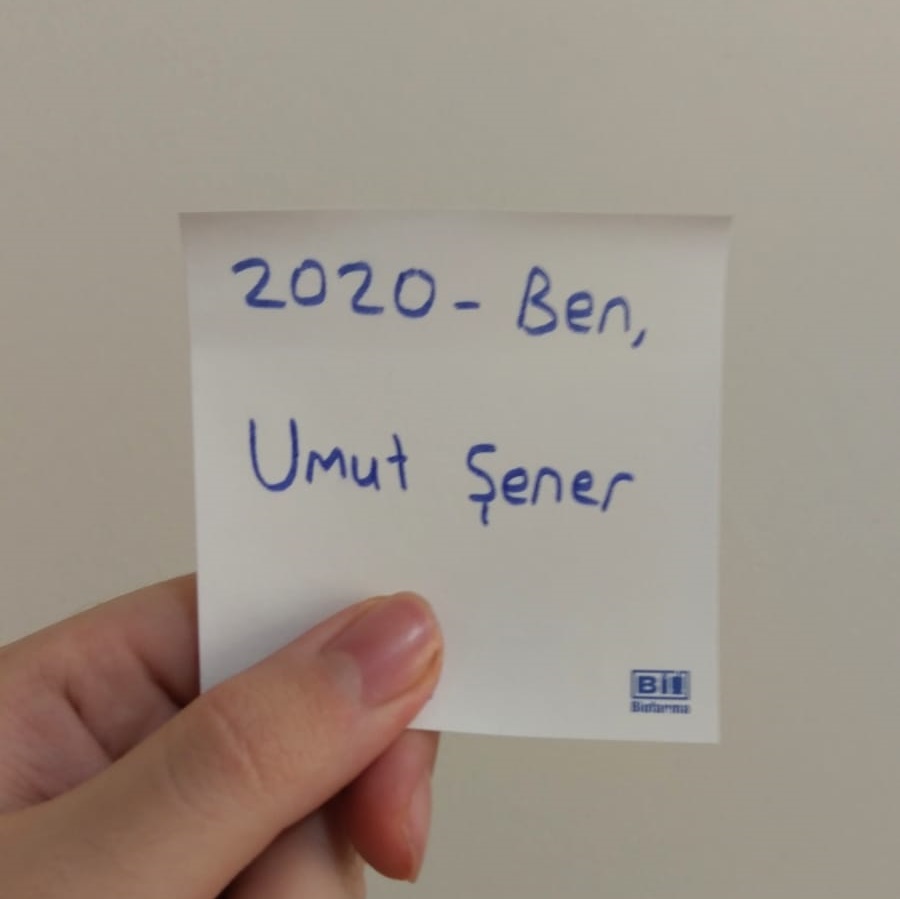 2020 - Ben,
Umut Şener
Bil
Biofarma